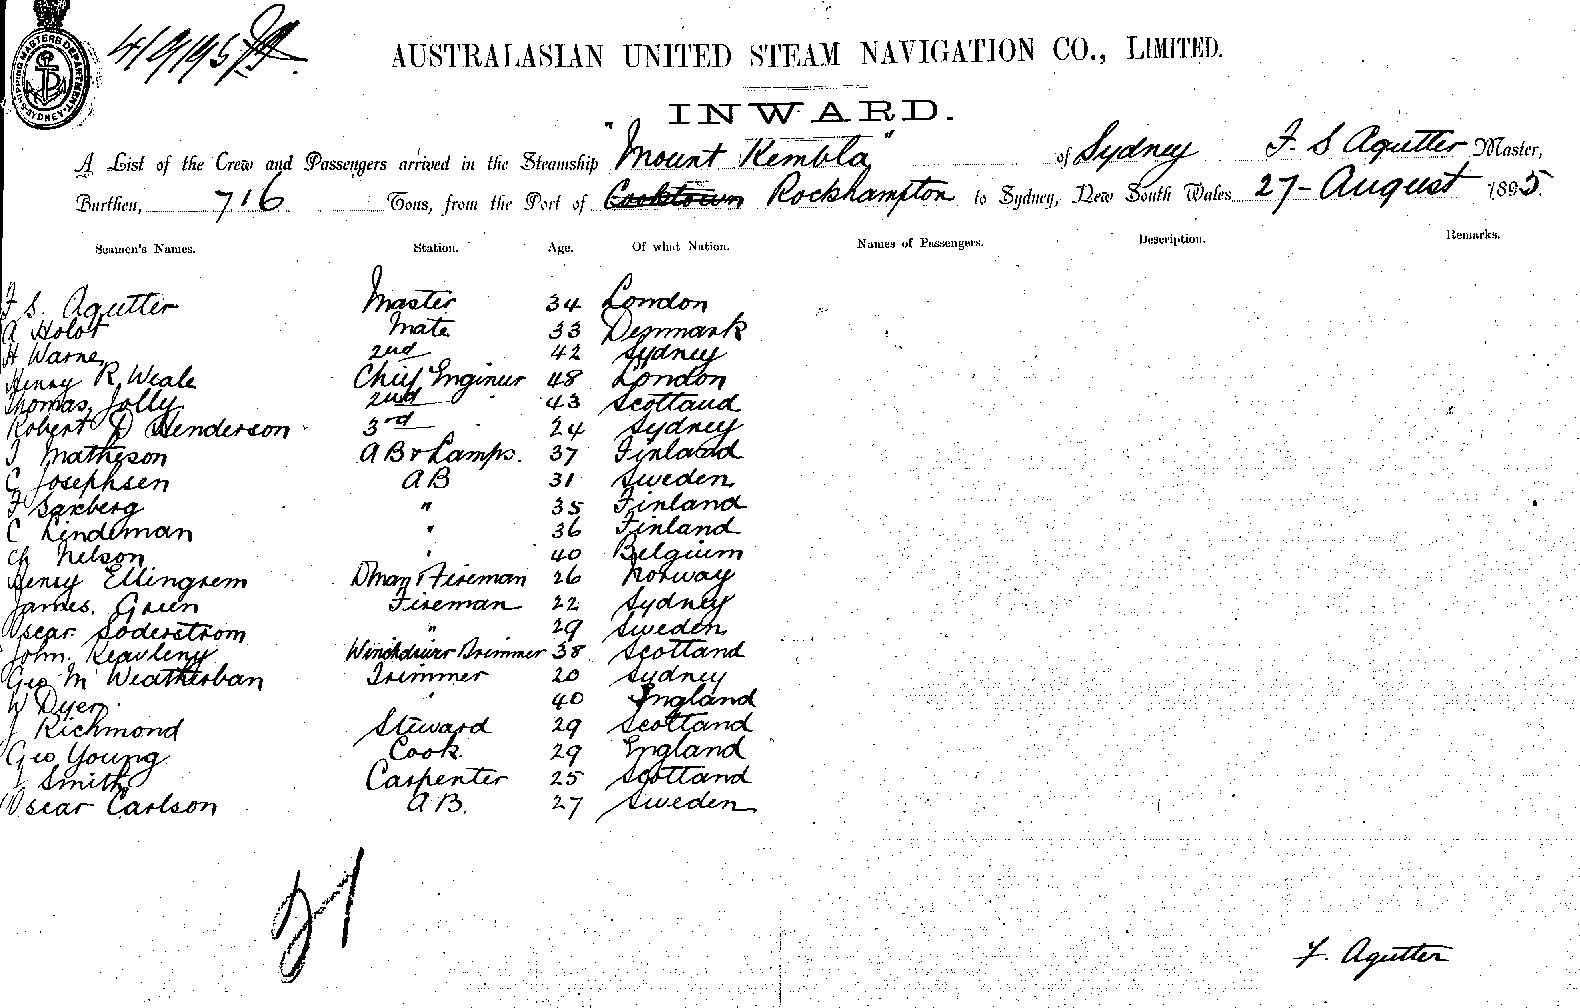 SHIPPING MASTERS DEPARTMENT SYDNEY
4/9/95
AUSTRALASIAN UNITED STEAM NAVIGATION CO., LIMITED.
INWARD.
A List of the Crew and Passengers arrived in the Steamship "Mount Kembla" of Sydney F. S Agutter Master,
Burthen, 716 Tons, from the Port of Cooktown Rockhampton to Sydney, New South Wales 27 - August 1895.
Seamen's Names. Station. Age. Of what Nation. Names of Passengers. Description. Remarks.
F S. Agutter Master 34 London
A Holst Mate 33 Denmark
H Warne 2nd 42 Sydney
Henry R. Weale Chief Engineer 48 London
Thomas Jolly 2nd 43 Scotland
Robert D Henderson 3rd 24 Sydney
J Matheson AB & Lamps. 37 Finland
C Josephsen AB 31 Sweden
F Saxberg " 35 Finland
C Lindeman " 36 Finland
Ch Nelson " 40 Belgium
Henry Ellingsem Dman & Fireman 26 Norway
James. Green Fireman 22 Sydney
Oscar Soderstrom " 29 Sweden
John. Reavleny Winchdriver Trimmer 38 Scotland
Geo M Weatherban Trimmer 20 Sydney
W Dyer " 40 England
J Richmond Steward 29 Scotland
Geo Young Cook 29 England
J Smith Carpenter 25 Scotland
Oscar Carlson A.B. 27 Sweden
21
F. Agutter